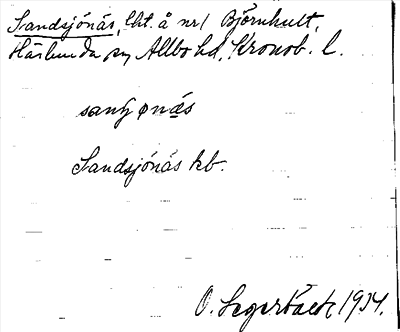 Sandsjönäs, lht. å nr 1 Björnhult,
Härlunda sn Allbo hd, Kronob. l.
sanʃønäs
Sandsjönäs kb.
O. Segerbäck 1934.